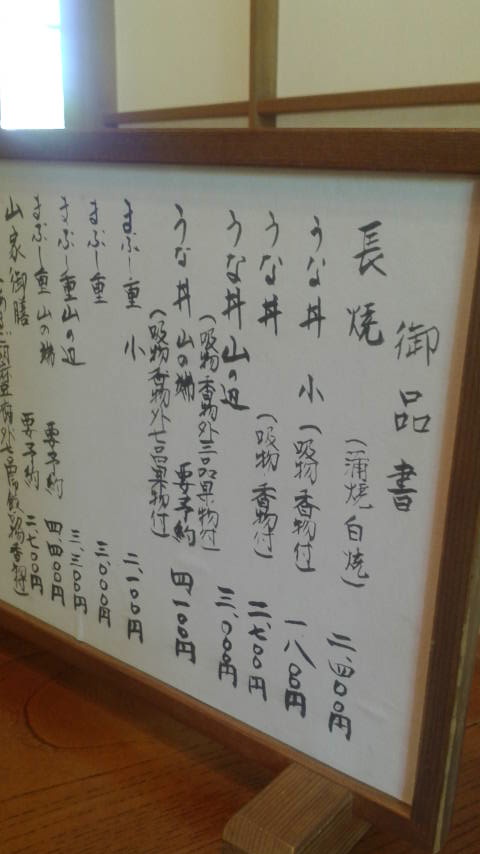 御品書
長焼 (蒲焼 白焼) 二、四〇〇円
うな丼 小 (吸物 香物付) 一、八〇〇円
うな丼 (吸物 香物付) 二、七〇〇円
うな丼 山の辺 三、一〇〇円
(吸物 香物外三品果物付)
うな丼 山の端 要予約 四、一〇〇円
(吸物 香物外七品果物付)
まぶし重 小 二、一〇〇円
まぶし重 三、〇〇〇円
まぶし重 山の辺 三、三〇〇円
まぶし重 山の端 要予約 四、四〇〇円
山家御膳 要予約 二、七〇〇円
胡麻豆腐外七品 御飯 吸物 香物付)